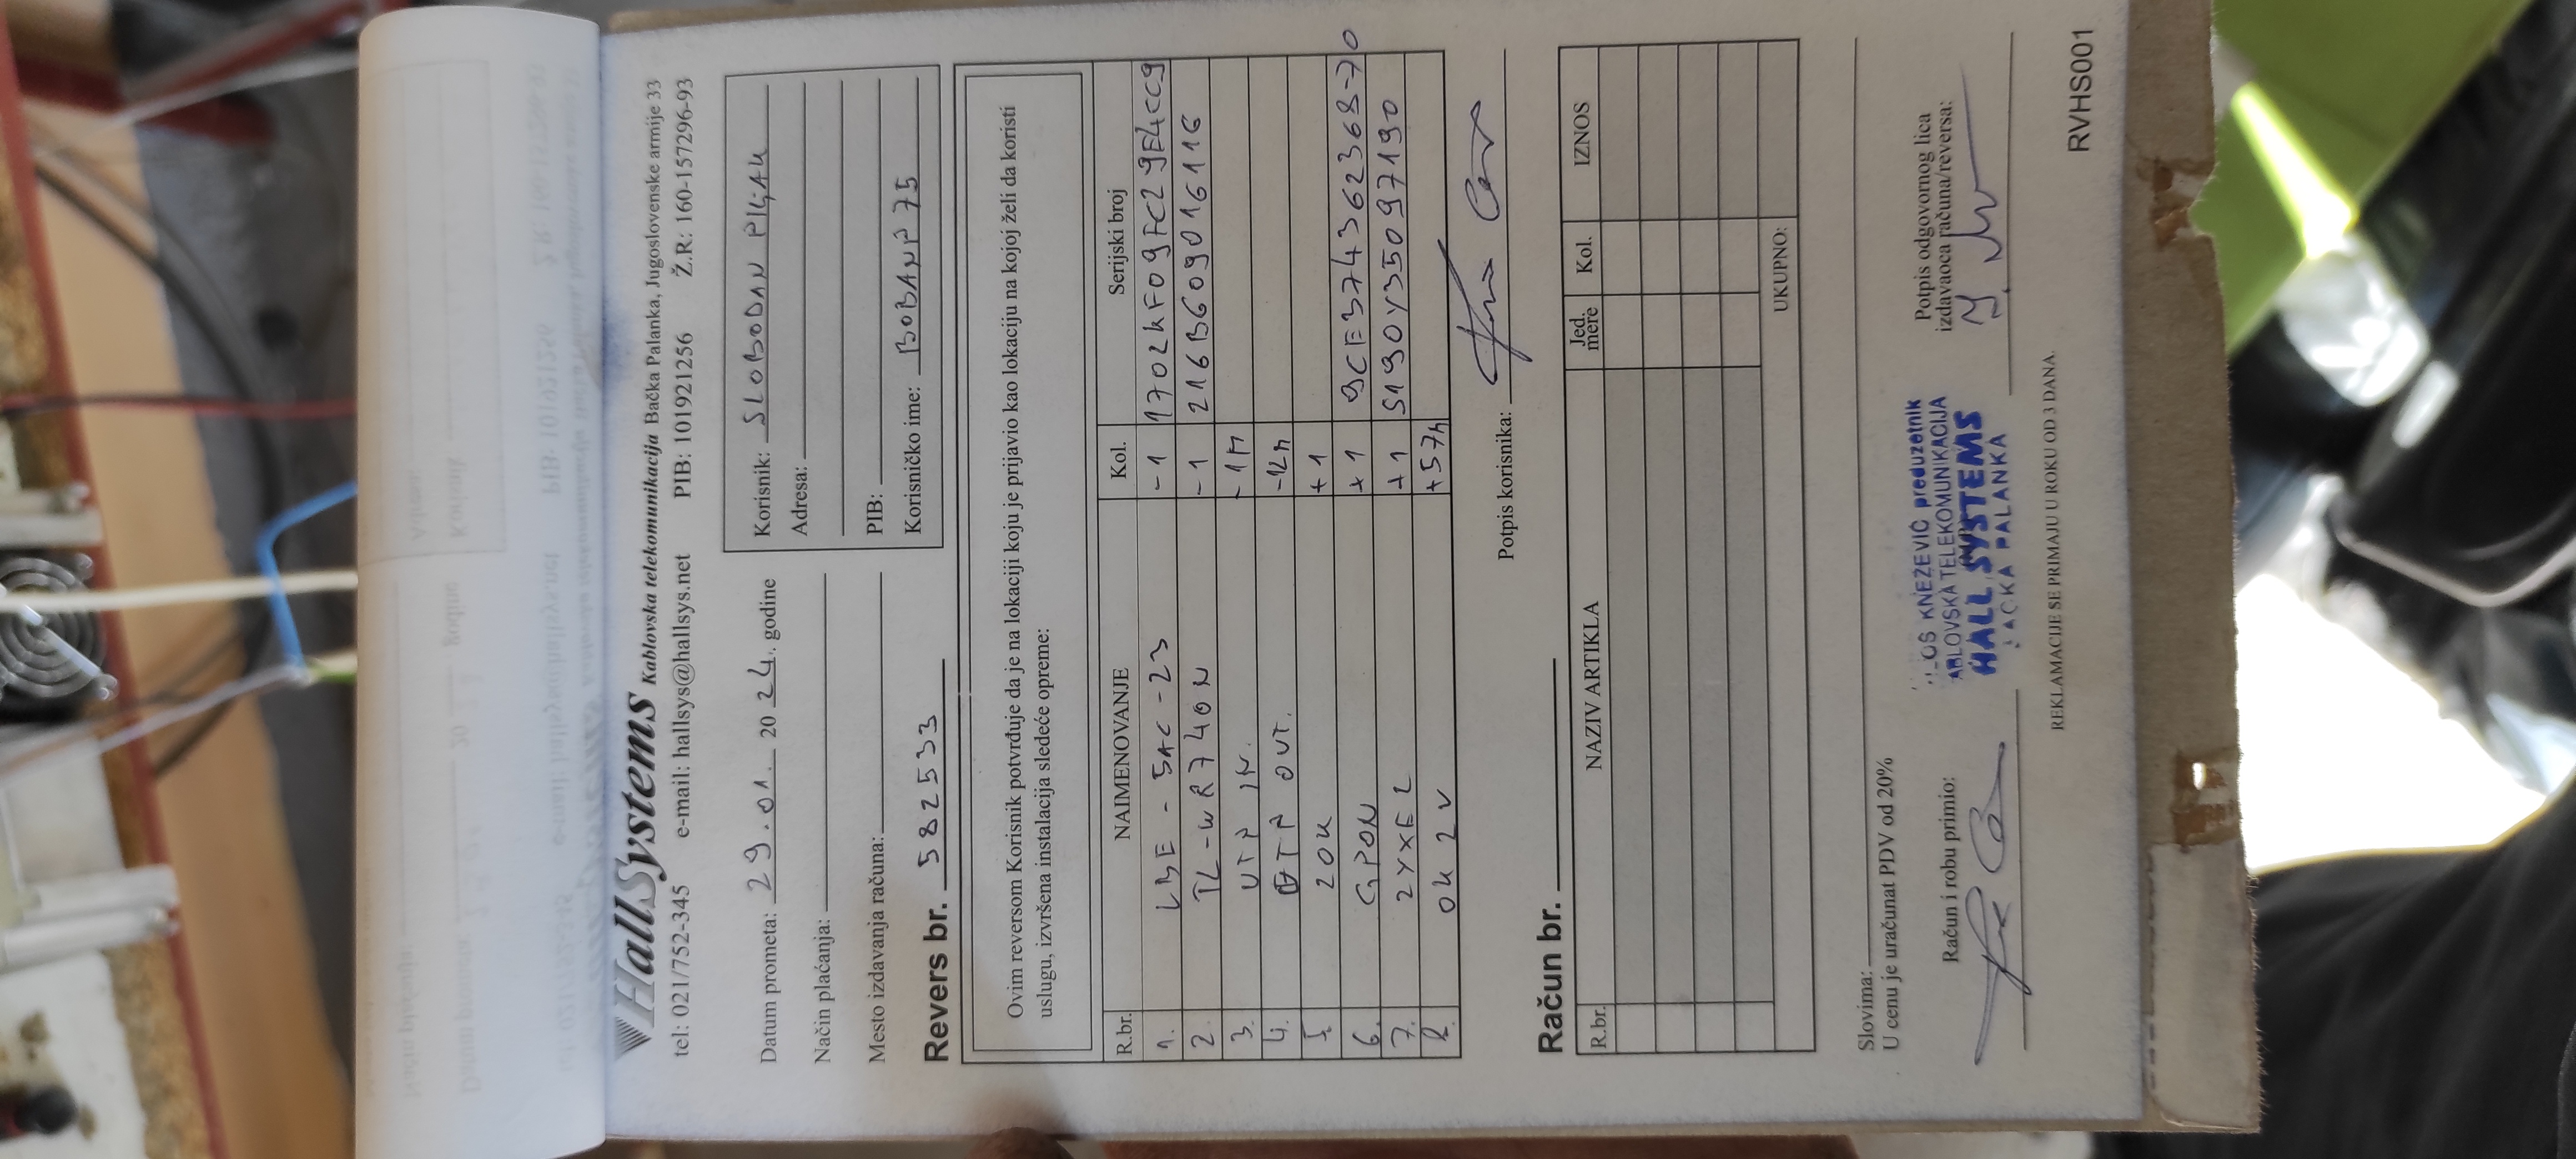 HallSystems Kablovska telekomunikacija Bačka Palanka, Jugoslovenske armije 33
tel: 021/752-345 e-mail: hallsys@hallsys.net PIB: 101921256 Ž.R: 160-157296-93
Datum prometa: 29.01. 2024. godine
Način plaćanja:
Mesto izdavanja računa:
Korisnik: SLOBODAN
Adresa:
PIB:
Korisničko ime: BOBANP75
Revers br. 582533
Ovim reversom Korisnik potvrđuje da je na lokaciji koju je prijavio kao lokaciju na kojoj želi da koristi
uslugu, izvršena instalacija sledeće opreme:
R.br. NAIMENOVANJE Kol. Serijski broj
1. LBE-5AC-23 -1 1702KF09FC29E4CC9
2. TL-WR740N -1 216B609016116
3. UTP IN. -1M
4. FTP OUT. -12M
5. ZOK +1
6. GPON +1 9CE37436236870
7. ZYXEL +1 S190Y35097190
8. OK 2V +57M
Potpis korisnika:
Račun br.
R.br. NAZIV ARTIKLA Jed. mere Kol. IZNOS
UKUPNO:
Slovima:
U cenu je uračunat PDV od 20%
Račun i robu primio:
KNEZEVIĆ preduzetnik
ABLOVSKA TELEKOMUNIKACIJA
HALL SYSTEMS
PALANKA
Potpis odgovornog lica
izdavaoca računa/reversa:
REKLAMACIJE SE PRIMAJU U ROKU OD 3 DANA.
RVHS001